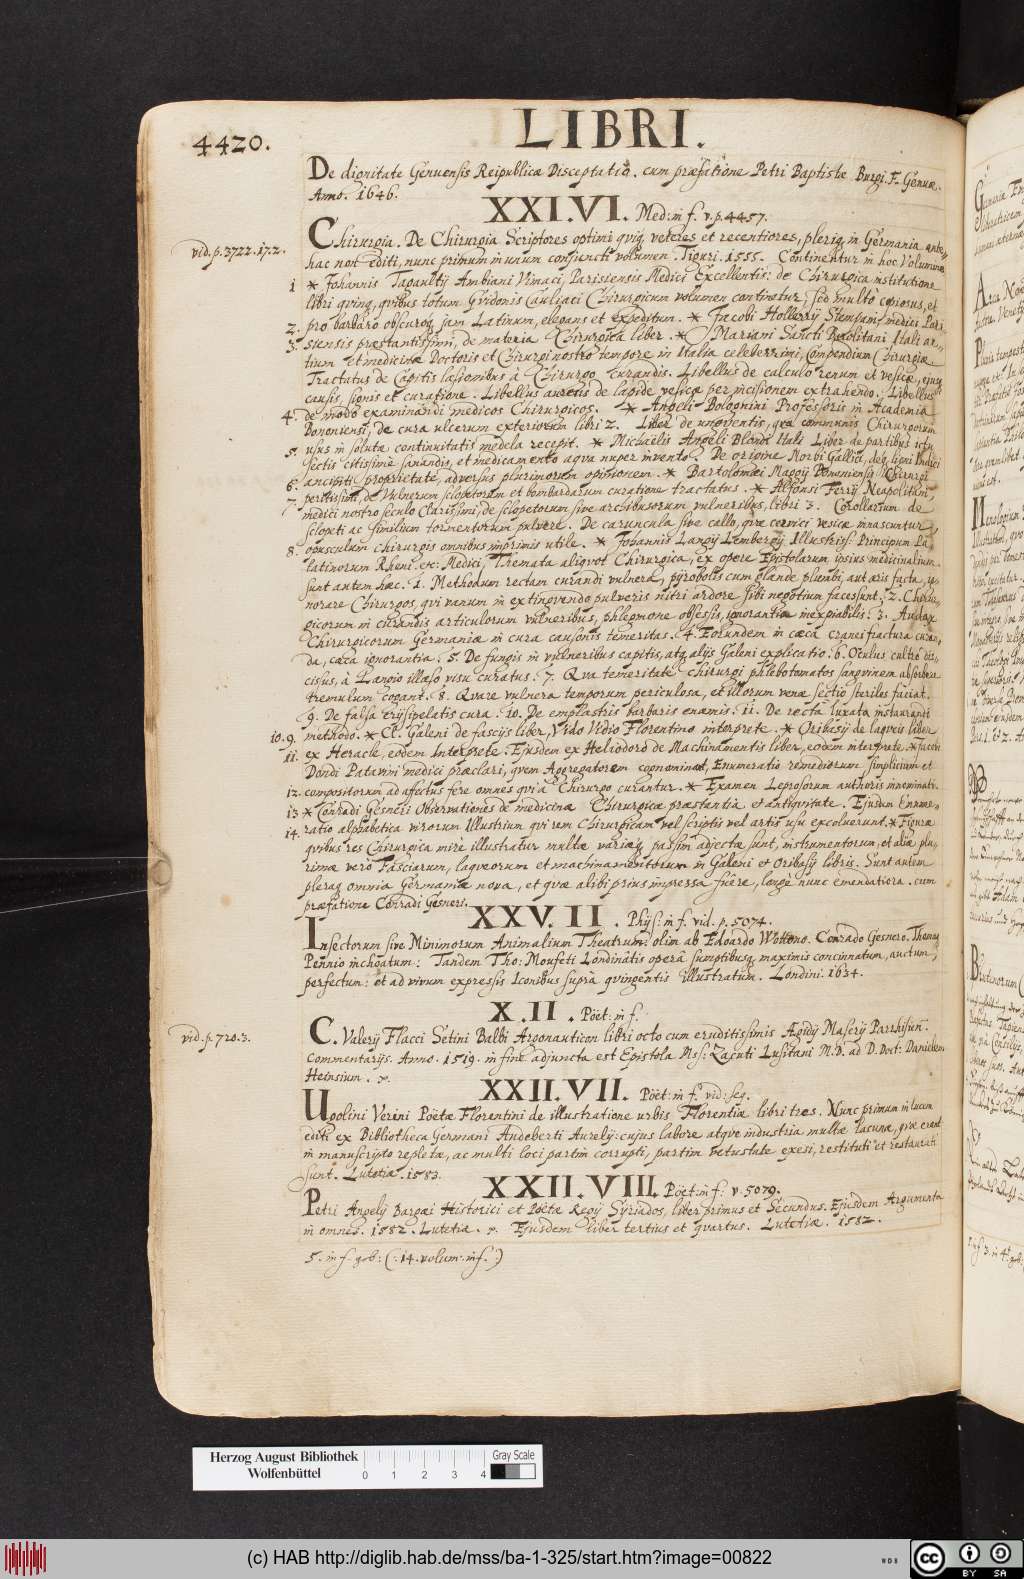 4420.
LIBRI.
De dignitate Genuensis Reipublicæ Disceptatio. cum præfatione Petri Baptistæ Burgi. F. Genuæ.
Anno. 1646.
XXI.VI. Med: in f. v. p. 4457.
vid. p. 3722. 17.2.
Chirurgia. De Chirurgia Scriptores optimi qviq. veteres et recentiores, pleriq. in Germania ante
hac non editi, nunc primum in unum conjuncti volumen. Tiguri. 1555. Continentur in hoc Volumine
1 * Johannis Tagaultij Ambiani Vimaci, Parisiensis Medici Excellentis: de Chirurgica institutione
libri qvinq, qvibus totum Gvidonis Cauliaci Chirurgicum volumen continetur, sed multò copiosus, et
2. pro barbaro obscuroq. jam Latinum, elegans et expeditum. * Jacobi Hollerij Stempani medici Pari
3. siensis præstantissimi, de materia Chirurgica liber. * Mariani Sancti Barolitani Itali ar-
tium et medicinæ Doctoris et Chirurgi nostro tempore in Italia celeberrimi, Compendium Chirurgiæ
Tractatus de Capitis læsionibus à Chirurgo curandis. Libellus de calculo renum et vesicæ, ejusq
causis, signis et curatione. Libellus aureus de lapide vesicæ per incisionem extrahendo. Libellus
4. de modo examinandi medicos Chirurgicos. * Angeli Bolognini Professoris in Academia
Bononiensi, de cura ulcerum exteriorum libri 2. Liber de ungventis, qvæ communis Chirurgorum
5. usus in soluta continuitatis medela recepit. * Michaëlis Angeli Blondi Itali Liber de partibus ictu
sectis citissime sanandis, et medicamento aqvæ nuper invento. De origine Morbi Gallici, deq. ligni Indici
6. ancipiti proprietate, adversus plurimorum opinionem. * Bartolomæi Maggij Bononiensis Chirurgi
7. peritissimi, de Vulnerum sclopetorum et bombardarum curatione tractatus. * Alfonsi Ferrij Neapolitani
medici nostro seculo Clarissimi, de sclopetorum sive archibusorum vulneribus, libri 3. Corollarium de
sclopeti ac similium tormentorum pulvere. De caruncula sive callo, qvæ cervici vesicæ innascuntur
8. opusculum chirurgis omnibus imprimis utile. * Johannis Langij Lembergij Illustriss: Principum Pa-
latinorum Rheni &c: Medici, Themata aliqvot Chirurgica, ex opere Epistolarum ipsius medicinalium.
sunt autem hæc. 1. Methodum rectam curandi vulnera, pyrobolis cum glande plumbi, aut æris facta, ig-
norare Chirurgos, qvi vanum in extingvendo pulveris nitri ardore sibi negotium facessunt. 2. Chirur-
gicorum in curandis articulorum vulneribus, phlegmone obsessis, ignorantia inexpiabilis. 3. Audax
Chirurgicorum Germaniæ in cura causonis temeritas. 4. Eorundem in cæca cranei fractura curan-
da, cæca ignorantia. 5. De fungis in vulneribus capitis, atq. alijs Galeni explicatio. 6. Oculus, cultro dis-
cisus, à Langio illæso visu curatus. 7. Qva temeritate chirurgi phlebotomatos sangvinem absorbere
tremulum cogant. 8. Qvare vulnera temporum periculosa, et illorum venæ sectio steriles faciat.
9. De falsa erysipelatis cura. 10. De emplastris barbaris enæmis. 11. De recta luxata instaurandi
10. 9. methodo. * Cl. Galeni de fascijs liber, Vido Vidio Florentino interprete. * Oribasij de laqveis liber
11. ex Heracle, eodem Interprete. Ejusdem ex Heliodoro de Machinamentis liber, eodem interprete. * Jacobi
Dondi Patavini medici præclari, qvem Aggregatorem cognominant, Enumeratio remediorum simplicium et
12. compositorum ad affectus fere omnes qvi à Chirurgo curantur. * Examen Leprosorum authoris innominati.
13 * Conradi Gesneri Observationes de medicinæ Chirurgicæ præstantia et antiqvitate. Ejusdem Enume-
14. ratio alphabetica virorum Illustrium qvi rem Chirurgicam vel scriptis vel artis usu excoluerunt. * Figuræ
qvibus res Chirurgica mire illustratur multæ variæq. passim adjectæ sunt, instrumentorum, et aliæ plu-
rimæ verò Fasciarum, laqveorum et machinamentorum in Galeni et Oribasij libris. Sunt autem
pleraq omnia Germaniæ nova, et qvæ alibi prius impressa fuêre, longè nunc emendatiora. cum
præfatione Conradi Gesneri.
XXV.II. Phys: in f. vid. p. 5074.
Insectorum sive Minimorum Animalium Theatrum: olim ab Edoardo Wottono. Conrado Gesnero. Thomaq
Pennio inchoatum: Tandem Tho: Moufeti Londinâtis operâ sumptibusq. maximis concinnatum, auctum,
perfectum: et ad vivum expressis Iconibus suprà qvingentis illustratum. Londini. 1634.
X.II. Poët: in f.
vid. p. 720.3.
C. Valerij Flacci Setini Balbi Argonauticon libri octo cum eruditissimis Ægidij Maserij Parrhisien.
Commentarijs. Anno. 1519. in fine adjuncta est Epistola Mss: Zacuti Lusitani M.D. ad D. Doct: Danielem
Heinsium.
XXII.VII. Poët: in f. vid: seq.
Ugolini Verini Poëtæ Florentini de illustratione urbis Florentiæ libri tres. Nunc primum in lucem
editi ex Bibliotheca Germani Audeberti Aurelij: cujus labore atqve industria multæ lacunæ, qvæ erant
in manuscripto repletæ, ac multi loci partim corrupti, partim vetustate exesi, restituti et restaurati
sunt. Lutetiæ. 1583.
XXII.VIII. Poët: in f: v. 5079.
Petri Angelij Bargæi Historici et Poëtæ Regij Syriados, liber primus et Secundus. Ejusdem Argumenta
in omnes. 1582. Lutetiæ. Ejusdem liber tertius et qvartus. Lutetiæ. 1582.
5. in f. geb: (: 14. volum: in f. :)
Herzog August Bibliothek
Wolfenbüttel
0 1 2 3 4
Gray Scale
(c) HAB http://diglib.hab.de/mss/ba-1-325/start.htm?image=00822
WDB
cc BY SA